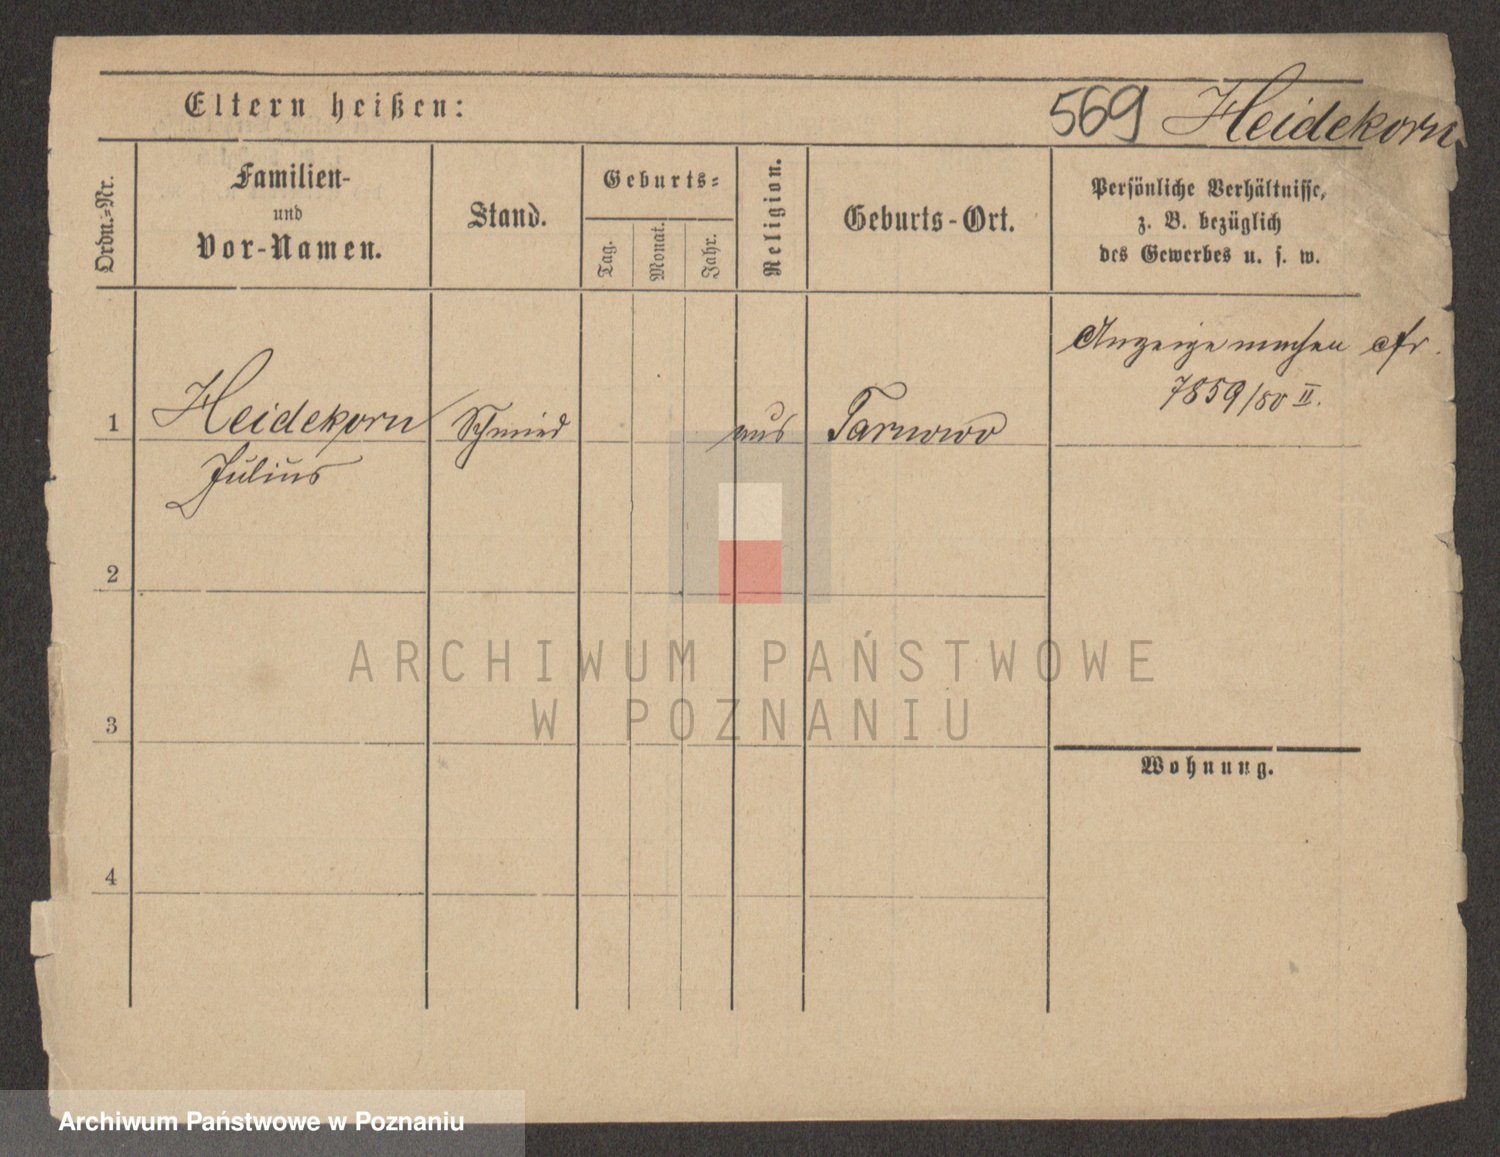 Eltern heißen:
569 Heidekorn
Ordn.=Nr.
Familien-
und
Vor-Namen.
Stand.
Geburts=
Tag.
Monat.
Jahr.
Religion.
Geburts-Ort.
Persönliche Verhältnisse,
z. B. bezüglich
des Gewerbes u. s. w.
Anzeige machen cfr.
7859/80 II.
1 Heidekorn Schmied aus Tarnowo
Julius
2
3
4
Wohnung.
ARCHIWUM PAŃSTWOWE
W POZNANIU
Archiwum Państwowe w Poznaniu